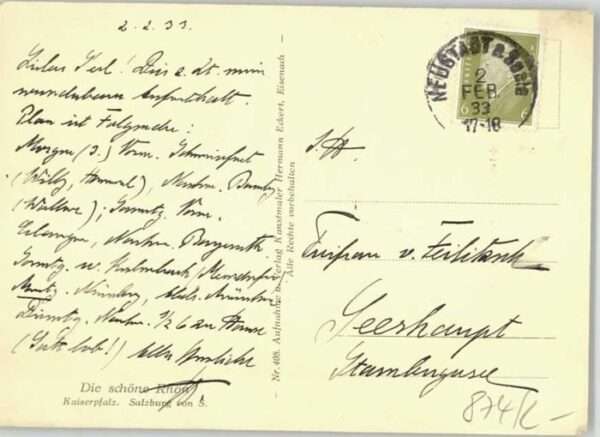 2. 2. 33.
Liebes Serl! Dies z. Zt. mein
wunderbarer Aufenthalt.
Plan ist Folgender:
Morgen (3.) Vorm. Schweinfurt
(Willy, ), Nachm. Bamberg
Vorm.
Erlangen, Nachm. Bayreuth
Sonntg. u. Kulmbach,
Nürnberg, München
Dienstg. Nachm. 1/2 6 zu Hause
(Gott lob!) Alles Herzliche
Die schöne Rhön
Kaiserpfalz. Salzburg von S.
Nr. 408. Aufnahme u. Verlag Kunstmaler Hermann Eckert, Eisenach
Alle Rechte vorbehalten
NEUSTADT
2
FEB.
33
17-18
6 6
I. H.
Freifrau v. Feilitzsch
Seeshaupt
Starnbergersee
874/2